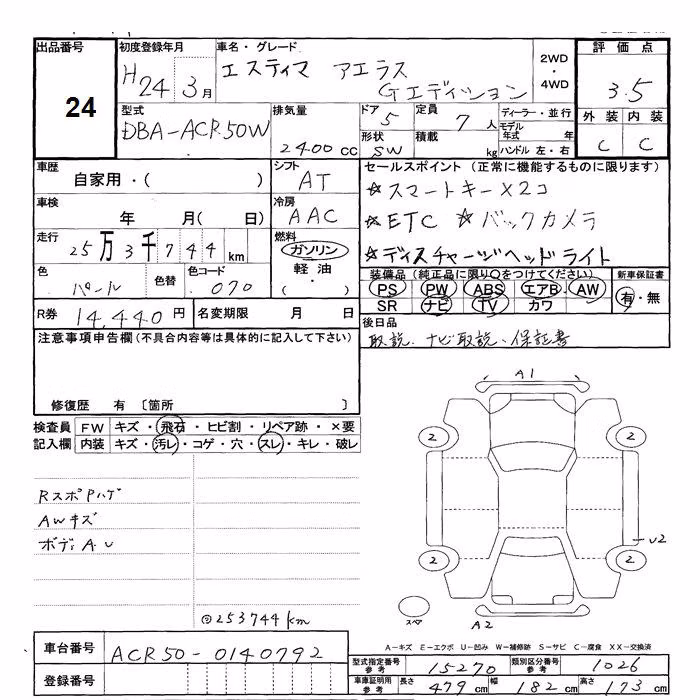 出品番号 初度登録年月 車名・グレード 2WD・4WD 評価点
24 H24年3月 エスティマ アエラス Gエディション 3.5
型式 排気量 ドア 定員 ディーラー・並行 外装 内装
DBA-ACR50W 2400cc 5 7人 モデル年式 年 C C
形状 SW 積載 kg ハンドル 左・右
車歴 自家用・( ) シフト AT セールスポイント (正常に機能するものに限ります)
☆スマートキー×2コ
車検 年 月( 日) 冷房 AAC ☆ETC ☆バックカメラ
走行 25万3千744km 燃料 ガソリン ☆ディスチャージヘッドライト
軽油・( )
色 パール 色替 色コード 070
装備品 (純正品に限り○をつけてください) 新車保証書
PS PW ABS エアB AW 有・無
SR ナビ TV カワ
R券 14,440円 名変期限 月 日
後日品
取説、ナビ取説、保証書
注意事項申告欄(不具合内容等は具体的に記入して下さい)
修復歴 有 〔箇所 〕
検査員 FW キズ・飛石・ヒビ割・リペア跡・×要
記入欄 内装 キズ・汚レ・コゲ・穴・スレ・キレ・破レ
RスポPハゲ
AWキズ
ボディA.U
◎253744km
A1
2 2
U2
2 2
スペア
A2
A-キズ E-エクボ U-凹み W-補修跡 S-サビ C-腐食 XX-交換済
車台番号 ACR50-0140792
登録番号
型式指定番号 参考 15270 類別区分番号 参考 1026
車庫証明用 参考 長さ 479cm 幅 182cm 高さ 173cm